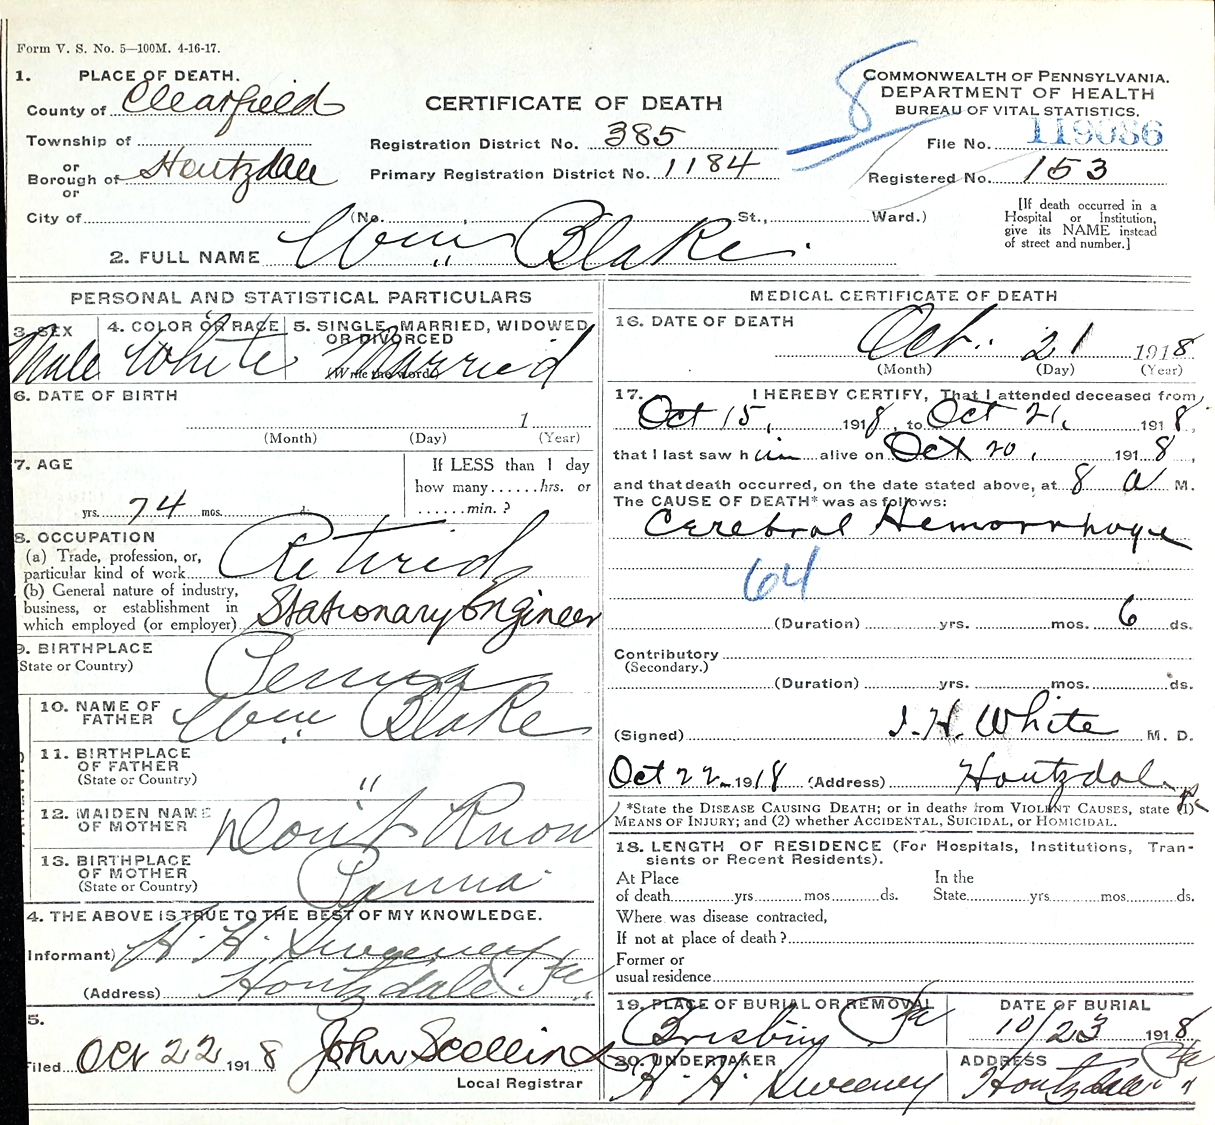 Form V. S. No. 5—100M. 4-16-17.
1. PLACE OF DEATH.
County of Clearfield
Township of
or
Borough of Houtzdale
or
City of (No. , St., Ward.)
CERTIFICATE OF DEATH
Registration District No. 385
Primary Registration District No. 1184
8
COMMONWEALTH OF PENNSYLVANIA.
DEPARTMENT OF HEALTH
BUREAU OF VITAL STATISTICS.
File No. 119086
Registered No. 153
[If death occurred in a
Hospital or Institution,
give its NAME instead
of street and number.]
2. FULL NAME Wm Blake
PERSONAL AND STATISTICAL PARTICULARS
3. SEX
Male
4. COLOR OR RACE
White
5. SINGLE, MARRIED, WIDOWED
OR DIVORCED
(Write the word)
Married
6. DATE OF BIRTH
1
(Month) (Day) (Year)
7. AGE
74
yrs. mos. d.
If LESS than 1 day
how many......hrs. or
......min. ?
8. OCCUPATION
(a) Trade, profession, or,
particular kind of work Retired
(b) General nature of industry,
business, or establishment in
which employed (or employer) Stationary Engineer
9. BIRTHPLACE
(State or Country) Penna
10. NAME OF
FATHER Wm Blake
11. BIRTHPLACE
OF FATHER
(State or Country) "
12. MAIDEN NAME
OF MOTHER Don't Know
13. BIRTHPLACE
OF MOTHER
(State or Country) Penna
4. THE ABOVE IS TRUE TO THE BEST OF MY KNOWLEDGE.
Informant) H. H. Sweeney
(Address) Houtzdale Pa.
5.
Filed Oct 22 1918 John Scollins
Local Registrar
MEDICAL CERTIFICATE OF DEATH
16. DATE OF DEATH
Oct. 21 1918
(Month) (Day) (Year)
17. I HEREBY CERTIFY, That I attended deceased from
Oct 15, 1918, to Oct 21, 1918,
that I last saw him alive on Oct 20, 1918,
and that death occurred, on the date stated above, at 8 a M.
The CAUSE OF DEATH* was as follows:
Cerebral Hemorrhage
64
(Duration) yrs. mos. 6 ds.
Contributory
(Secondary.)
(Duration) yrs. mos. ds.
(Signed) J. H. White M. D.
Oct 22 1918 (Address) Houtzdale Pa
*State the DISEASE CAUSING DEATH; or in deaths from VIOLENT CAUSES, state (1)
MEANS OF INJURY; and (2) whether ACCIDENTAL, SUICIDAL, or HOMICIDAL.
18. LENGTH OF RESIDENCE (For Hospitals, Institutions, Tran-
sients or Recent Residents).
At Place
of death yrs. mos. ds.
In the
State yrs. mos. ds.
Where was disease contracted,
If not at place of death ?
Former or
usual residence
19. PLACE OF BURIAL OR REMOVAL
Brisbin, Pa
DATE OF BURIAL
10/23 1918
20. UNDERTAKER
H. H. Sweeney
ADDRESS
Houtzdale Pa